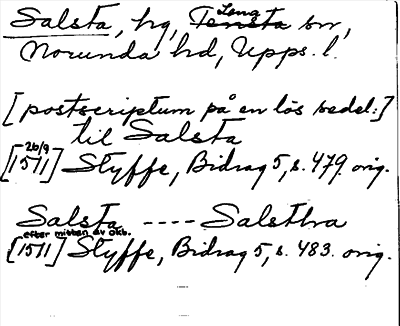 Salsta, hg, Tensta Lena sn,
Norunda hd, Upps. l.
[postscriptum på en lös sedel:]
til Salsta
[26/9 1511] Styffe, Bidrag 5, s. 479. orig.
Salsta ---- Salstha
[efter mitten av okt. 1511] Styffe, Bidrag 5, s. 483. orig.